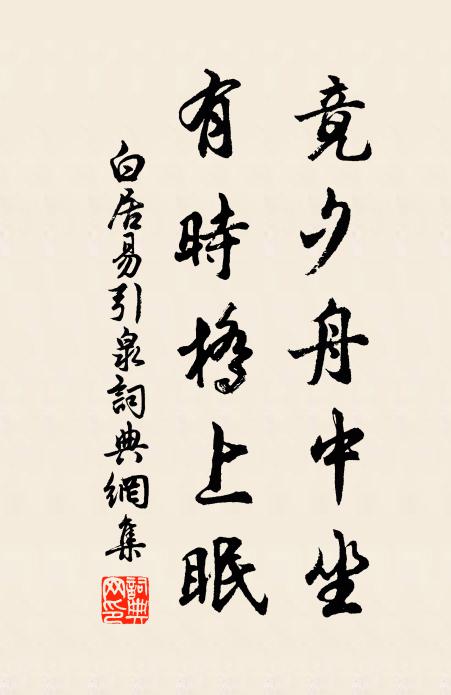 竟夕舟中坐
有時橋上眠
白居易引泉詞典網集
詞典
网印